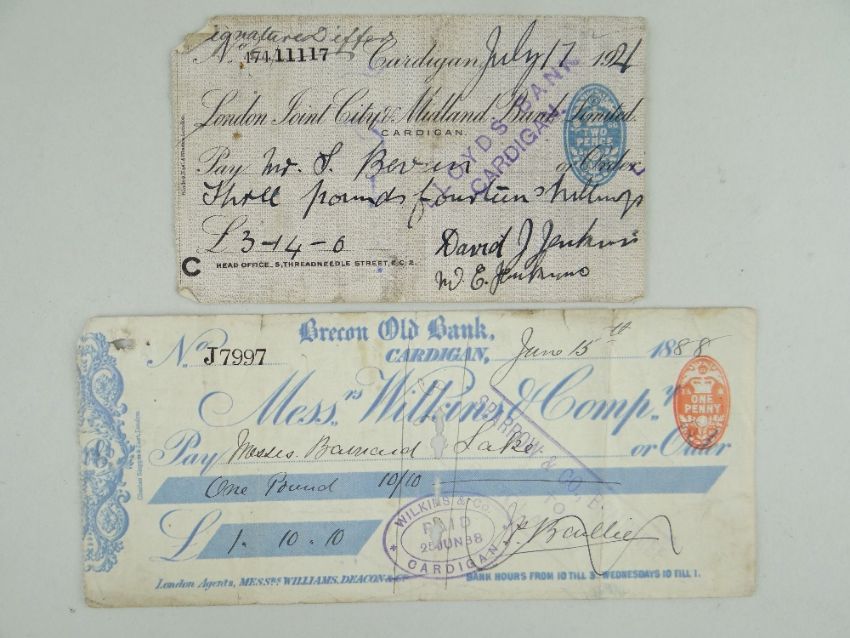 Signature Differs
No 474,11117 Cardigan, July 17 1921
London Joint City & Midland Bank Limited.
CARDIGAN.
LLOYDS BANK
CARDIGAN.
TWO PENCE
Pay Mr. S. Bevan or Order
Three pounds fourteen shillings
£ 3-14-0
David J Jenkins
W. E. Jenkins
C HEAD OFFICE, 5, THREADNEEDLE STREET, E.C. 2.
Brecon Old Bank,
No J7997 CARDIGAN, June 15th 1888
Messrs Wilkins & Compy
ONE PENNY
SPARROW & CO.
Pay Messrs. Barnard & Lake or Order
One Pound 10/10
£ 1. 10. 10
WILKINS & CO.
PAID
25 JUN 88
CARDIGAN
London Agents, MESSRS WILLIAMS, DEACON & Co
BANK HOURS FROM 10 TILL 3. WEDNESDAYS 10 TILL 1.